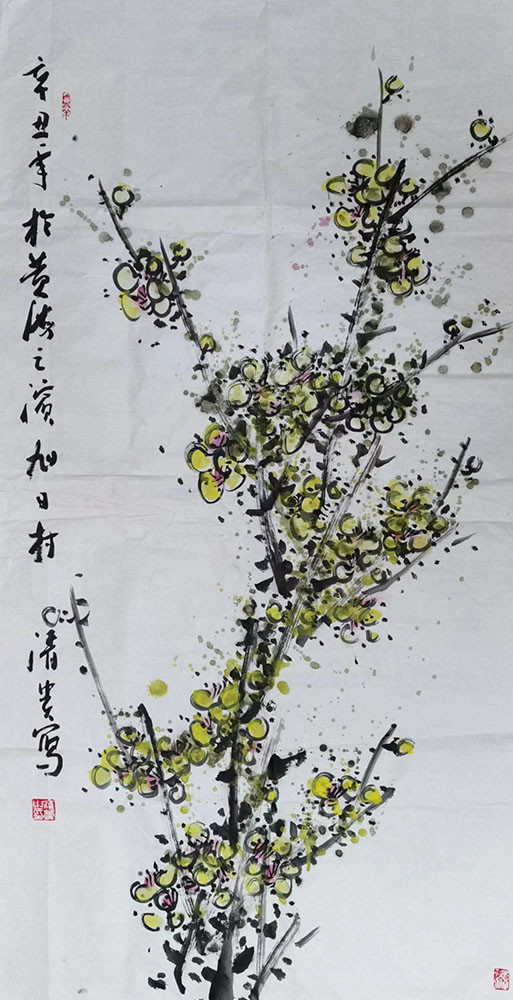 辛丑年於黄海之濱旭日村
清贵写